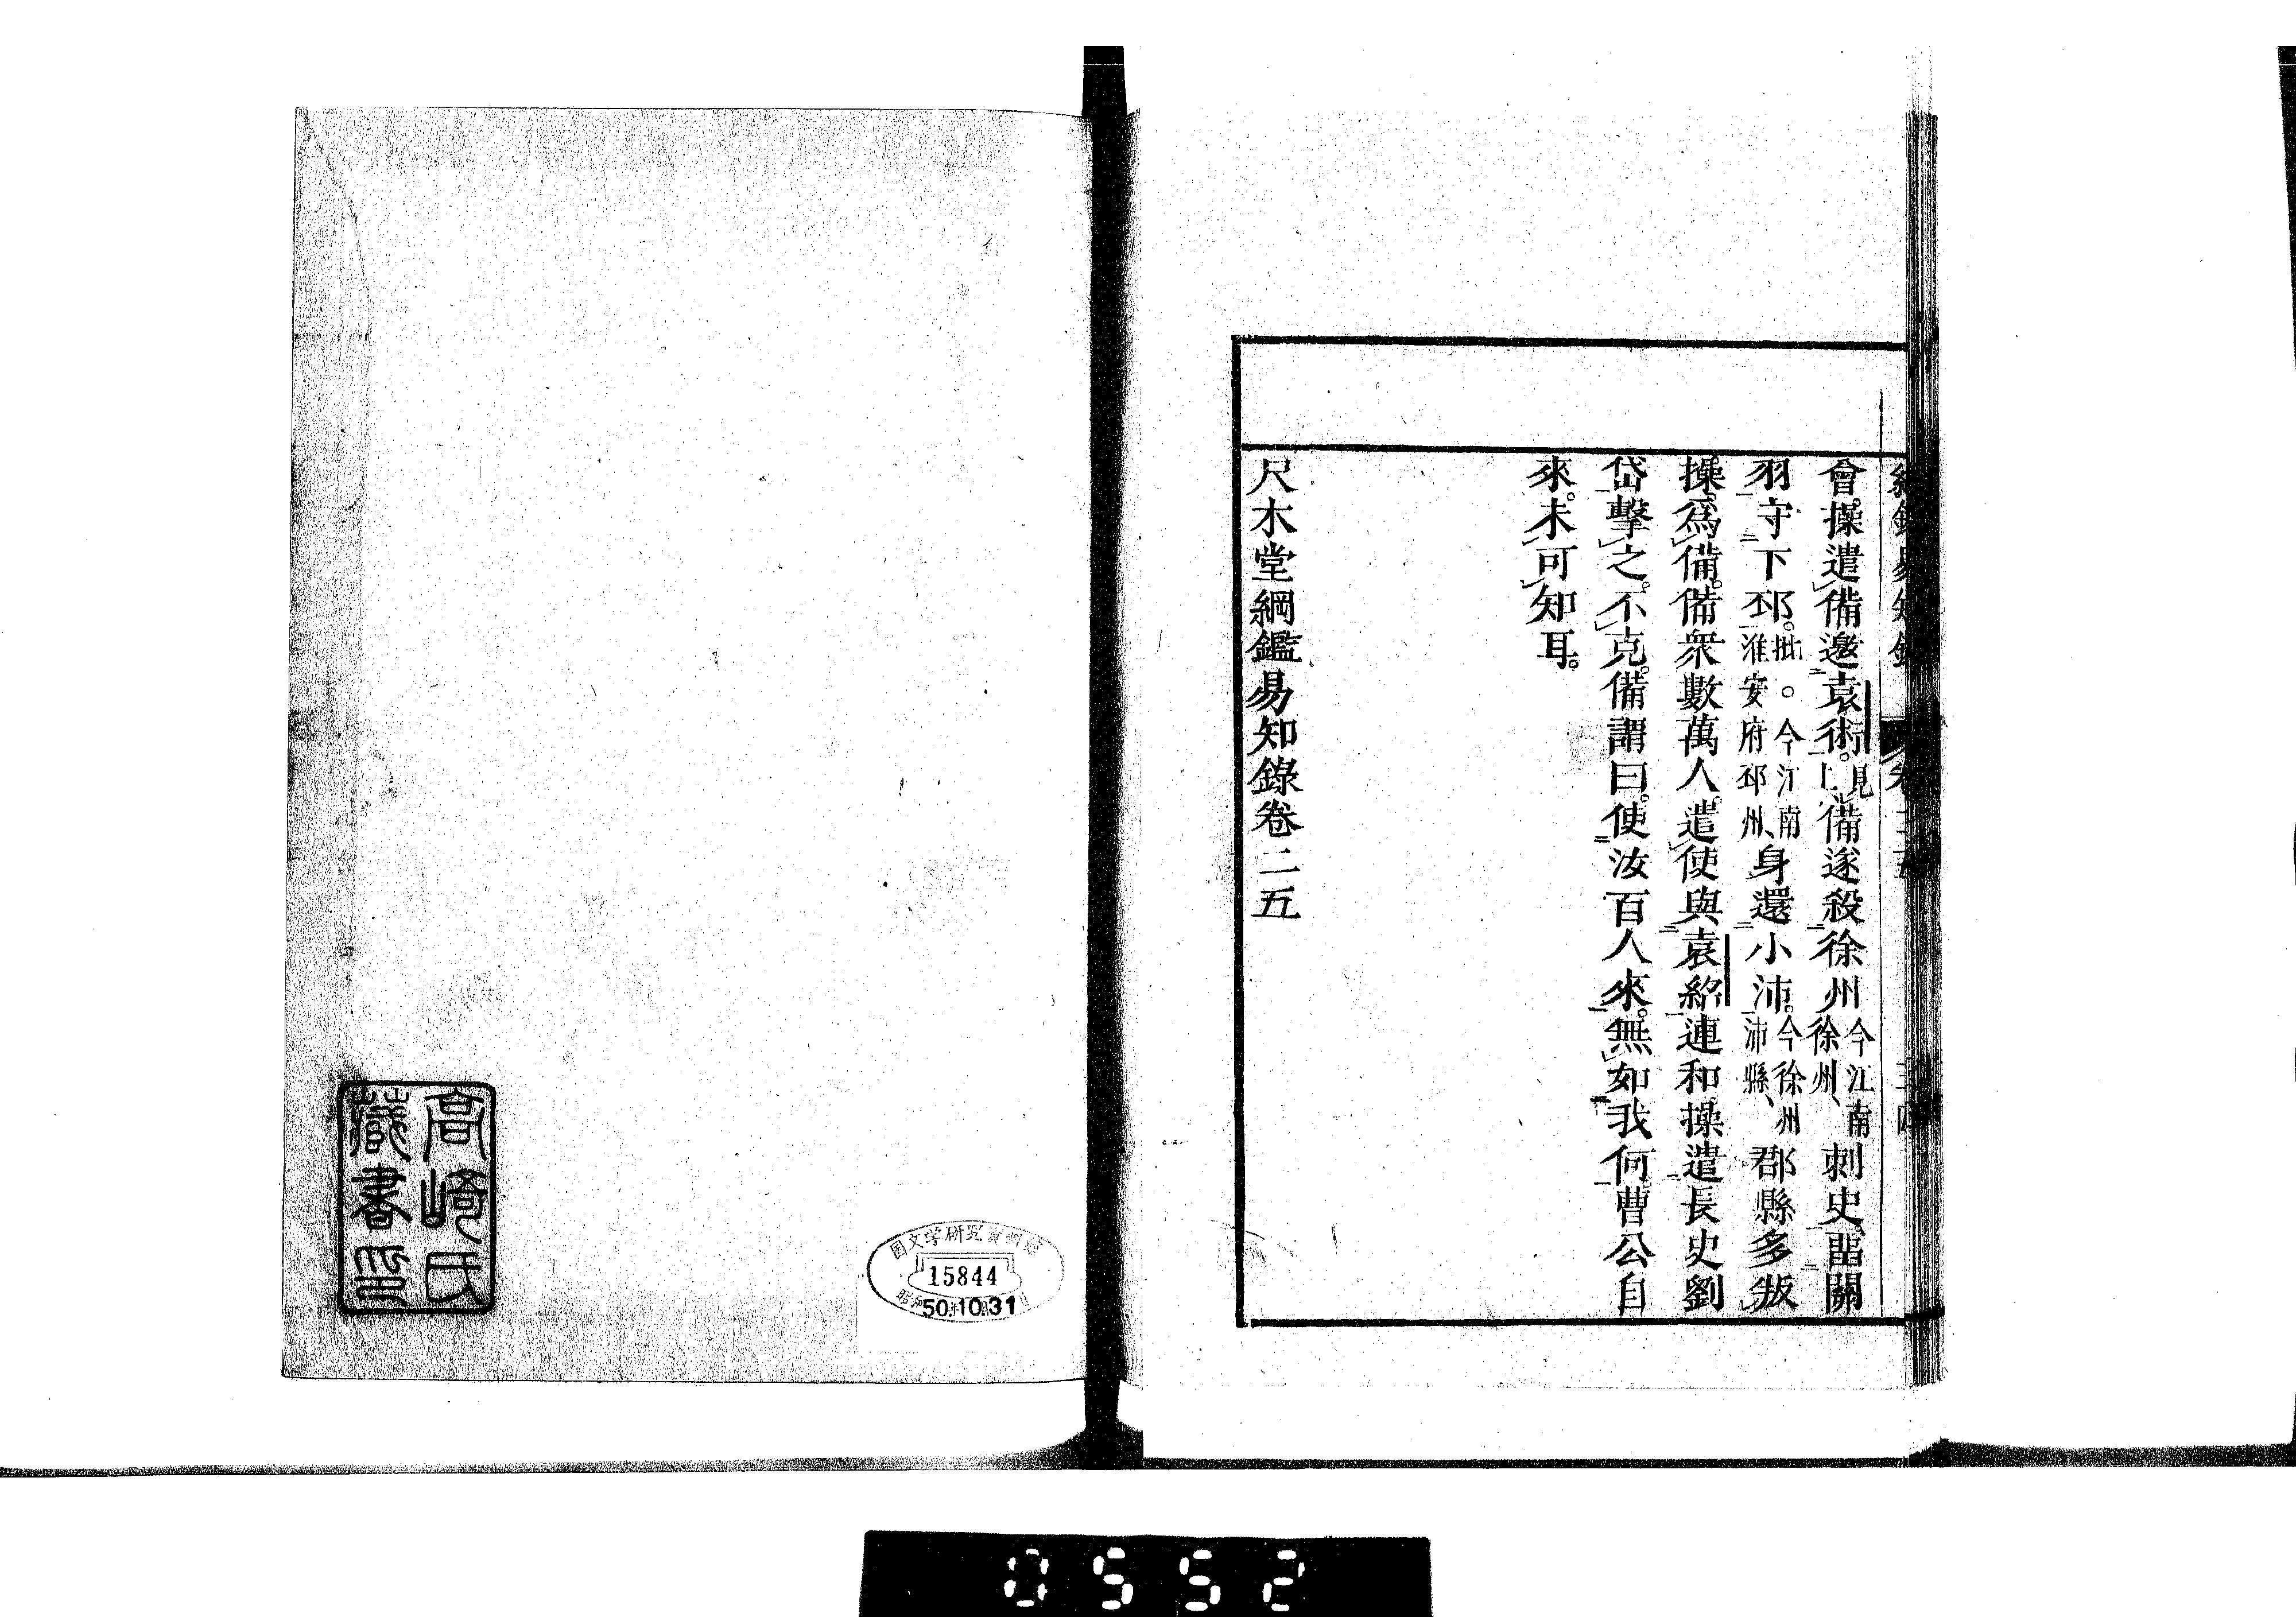 會。操遣備邀袁術。見上、備遂殺徐州今江南徐州、刺史。畱關
羽守下邳。批。今江南淮安府邳州、身還小沛。今徐州沛縣、郡縣多叛
操。爲備。備衆數萬人。遣使與袁紹連和。操遣長史劉
岱擊之。不克。備謂曰。使汝百人來。無如我何。曹公自
來。未可知耳。
尺木堂綱鑑易知錄卷二五
高崎氏
藏書印
国文学研究資料館
15844
50.10.31
0552